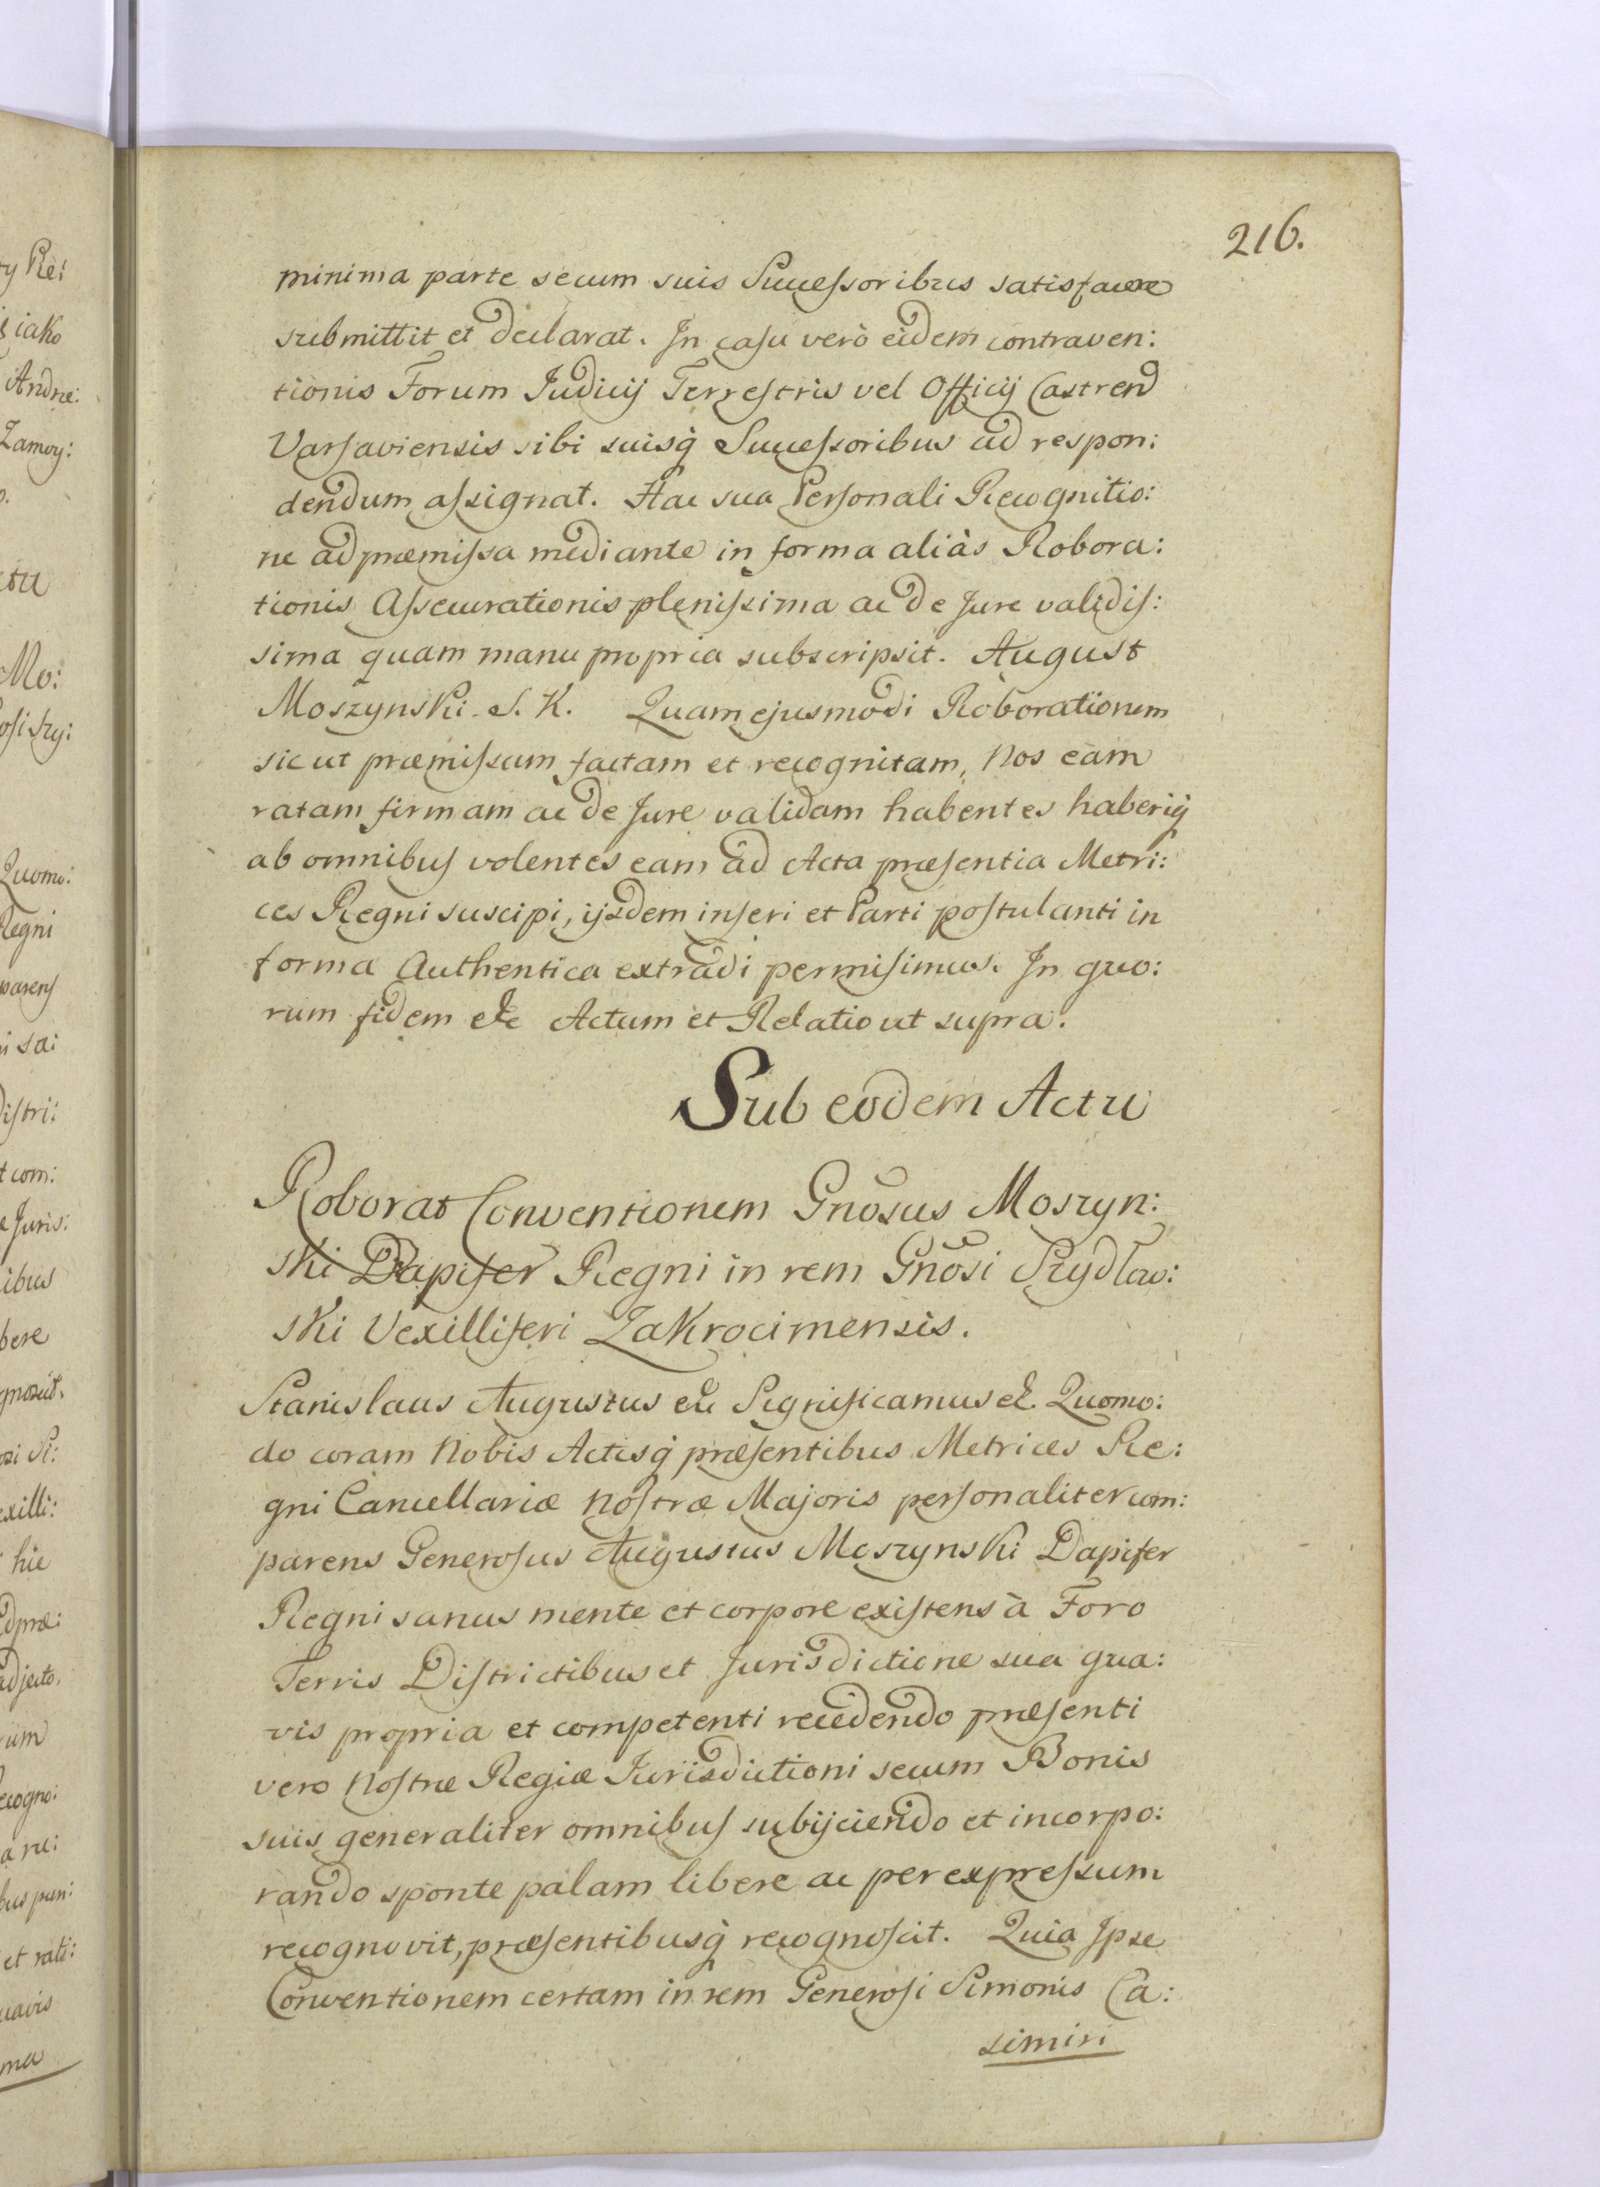 216.
minima parte secum suis Successoribus satisfacere
submittit et declarat. In casu verò eidem contraven:
tionis Forum Judicij Terrestris vel Officij Castren
Varsaviensis sibi suisq̃ Successoribus ad respon:
dendum assignat. Hac sua Personali Recognitio:
ne ad præmissa mediante in forma aliàs Robora:
tionis Assecurationis plenissima ac de Jure validis:
sima quam manu propria subscripsit. August
Moszynski S. K. Quam ejusmodi Roborationem
sicut præmissum factam et recognitam, Nos eam
ratam firmam ac de Jure validam habentes haberiq̃
ab omnibus volentes eam ad Acta præsentia Metri:
ces Regni suscipi, ijsdem inseri et Parti postulanti in
forma Authentica extradi permisimus. In quo:
rum fidem etc Actum et Relatio ut supra.
Sub eodem Actu
Roborat Conventionem Gnõsus Moszyn:
ski Dapifer Regni in rem Gnõsi Szydłow:
ski Vexilliferi Zakrocimensis.
Stanislaus Augustus etc Significamus et. Quomo:
do coram Nobis Actisq̃ præsentibus Metrices Re:
gni Cancellariæ Nostræ Majoris personaliter com:
parens Generosus Augustus Moszynski Dapifer
Regni sanus mente et corpore existens à Foro
Terris Districtibus et Jurisdictione sua qua:
vis propria et competenti recedendo præsenti
vero Nostræ Regiæ Jurisdictioni secum Bonis
suis generaliter omnibus subijciendo et incorpo:
rando sponte palam libere ac per expressum
recognovit, præsentibusq̃ recognoscit. Quia Ipse
Conventionem certam in rem Generosi Simonis Ca:
simiri